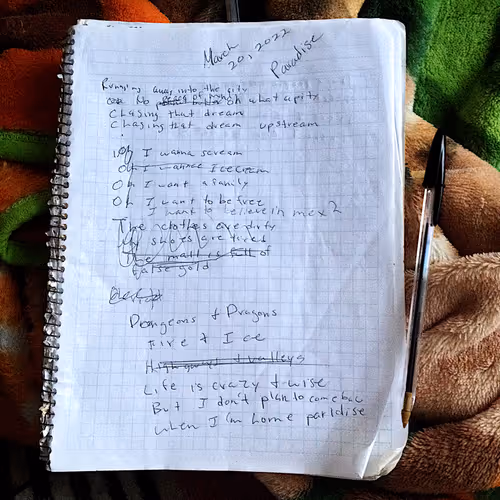 March
20, 2022
Paradise
Running away into the city
No peace of mind oh what a pity
Chasing that dream
Chasing that dream upstream
Oh I wanna scream
Oh I wanna Icecream
Oh I want a family
Oh I want to be free
I want to believe in me x2
The clothes are dirty
My shoes are tired
The mall is full of
false gold
Dungeons & Dragons
Fire & Ice
High ground & valleys
Life is crazy & wise
But I don't plan to come bac
when I'm home paridise